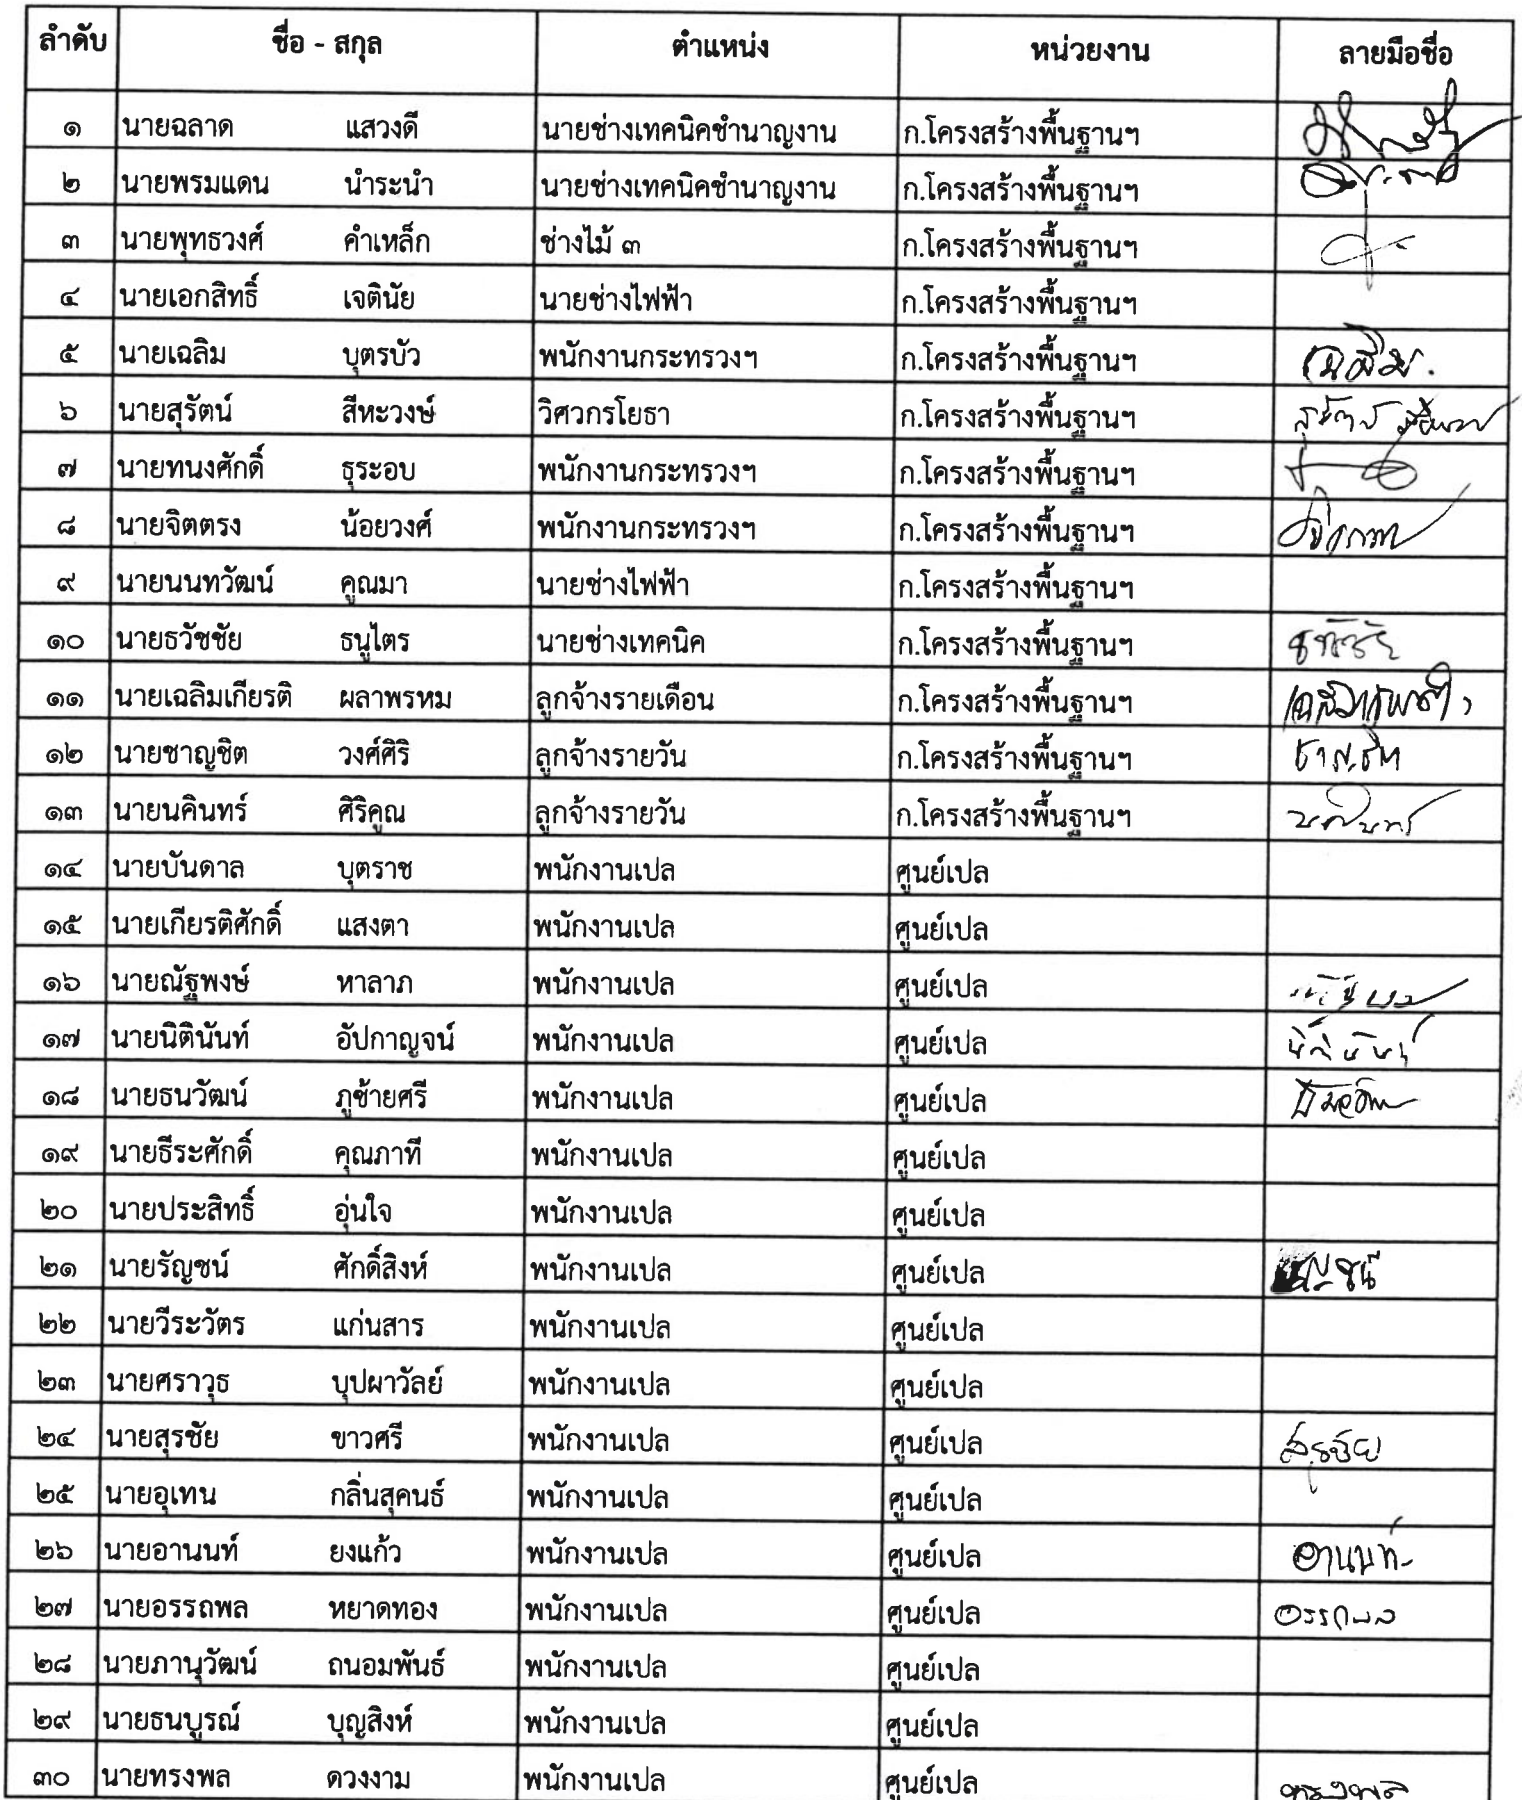 ลำดับ ชื่อ - สกุล ตำแหน่ง หน่วยงาน ลายมือชื่อ
๑ นายฉลาด แสวงดี นายช่างเทคนิคชำนาญงาน ก.โครงสร้างพื้นฐานฯ
๒ นายพรมแดน นำระนำ นายช่างเทคนิคชำนาญงาน ก.โครงสร้างพื้นฐานฯ
๓ นายพุทธวงศ์ คำเหล็ก ช่างไม้ ๓ ก.โครงสร้างพื้นฐานฯ
๔ นายเอกสิทธิ์ เจตินัย นายช่างไฟฟ้า ก.โครงสร้างพื้นฐานฯ
๕ นายเฉลิม บุตรบัว พนักงานกระทรวงฯ ก.โครงสร้างพื้นฐานฯ เฉลิม.
๖ นายสุรัตน์ สีหะวงษ์ วิศวกรโยธา ก.โครงสร้างพื้นฐานฯ
๗ นายทนงศักดิ์ ธุระอบ พนักงานกระทรวงฯ ก.โครงสร้างพื้นฐานฯ
๘ นายจิตตรง น้อยวงศ์ พนักงานกระทรวงฯ ก.โครงสร้างพื้นฐานฯ
๙ นายนนทวัฒน์ คูณมา นายช่างไฟฟ้า ก.โครงสร้างพื้นฐานฯ
๑๐ นายธวัชชัย ธนูไตร นายช่างเทคนิค ก.โครงสร้างพื้นฐานฯ ธวัชชัย
๑๑ นายเฉลิมเกียรติ ผลาพรหม ลูกจ้างรายเดือน ก.โครงสร้างพื้นฐานฯ เฉลิมเกียรติ
๑๒ นายชาญชิต วงศ์ศิริ ลูกจ้างรายวัน ก.โครงสร้างพื้นฐานฯ ชาญชิต
๑๓ นายนคินทร์ ศิริคูณ ลูกจ้างรายวัน ก.โครงสร้างพื้นฐานฯ นคินทร์
๑๔ นายบันดาล บุตราช พนักงานเปล ศูนย์เปล
๑๕ นายเกียรติศักดิ์ แสงตา พนักงานเปล ศูนย์เปล
๑๖ นายณัฐพงษ์ หาลาภ พนักงานเปล ศูนย์เปล
๑๗ นายนิตินันท์ อัปกาญจน์ พนักงานเปล ศูนย์เปล นิตินันท์
๑๘ นายธนวัฒน์ ภูซ้ายศรี พนักงานเปล ศูนย์เปล
๑๙ นายธีระศักดิ์ คุณภาที พนักงานเปล ศูนย์เปล
๒๐ นายประสิทธิ์ อุ่นใจ พนักงานเปล ศูนย์เปล
๒๑ นายรัญชน์ ศักดิ์สิงห์ พนักงานเปล ศูนย์เปล
๒๒ นายวีระวัตร แก่นสาร พนักงานเปล ศูนย์เปล
๒๓ นายศราวุธ บุปผาวัลย์ พนักงานเปล ศูนย์เปล
๒๔ นายสุรชัย ขาวศรี พนักงานเปล ศูนย์เปล สุรชัย
๒๕ นายอุเทน กลิ่นสุคนธ์ พนักงานเปล ศูนย์เปล
๒๖ นายอานนท์ ยงแก้ว พนักงานเปล ศูนย์เปล อานนท์
๒๗ นายอรรถพล หยาดทอง พนักงานเปล ศูนย์เปล อรรถพล
๒๘ นายภานุวัฒน์ ถนอมพันธ์ พนักงานเปล ศูนย์เปล
๒๙ นายธนบูรณ์ บุญสิงห์ พนักงานเปล ศูนย์เปล
๓๐ นายทรงพล ดวงงาม พนักงานเปล ศูนย์เปล ทรงพล